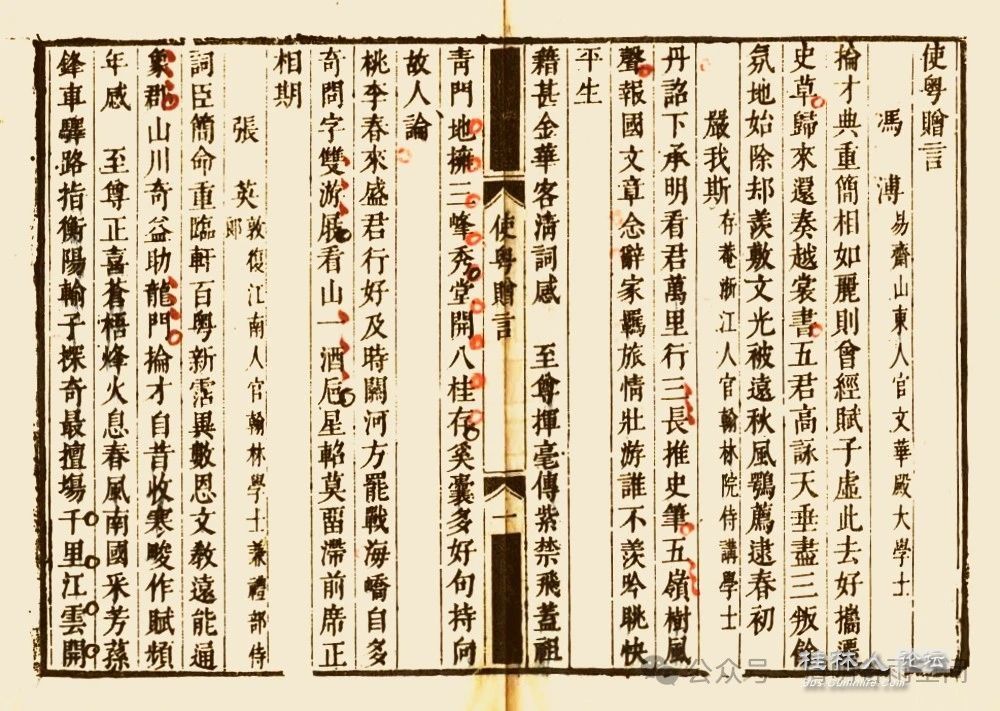 使粵贈言
馮 溥 易齋山東人官文華殿大學士
掄才典重簡相如麗則曾經賦子虛此去好攜
史草歸來還奏越裳書五君高詠天垂盡三叛餘
氛地始除却羨敷文光被遠秋風鶚薦逮春初
嚴我斯 存菴浙江人官翰林院侍講學士
丹詔下承明看君萬里行三長推史筆五嶺樹風
聲報國文章念辭家羈旅情壯游誰不羨吟眺快
平生
藉甚金華客清詞感 至尊揮毫傳紫禁飛蓋祖
使粵贈言 一
青門地擁三峰秀堂開八桂存奚囊多好句持向
故人論
桃李春來盛君行好及時關河方罷戰海嶠自多
奇問字雙游屐看山一酒巵星軺莫畱滯前席正
相期
張 英 敦復江南人官翰林學士兼禮部侍郎
詞臣簡命重臨軒百粵新霑異數恩文教遠能通
象郡山川奇益助龍門掄才自昔收寒畯作賦頻
年感 至尊正喜蒼梧烽火息春風南國采芳蓀
鋒車驛路指衡陽輸子探奇最擅場千里江雲開
公众号
桂林人论坛